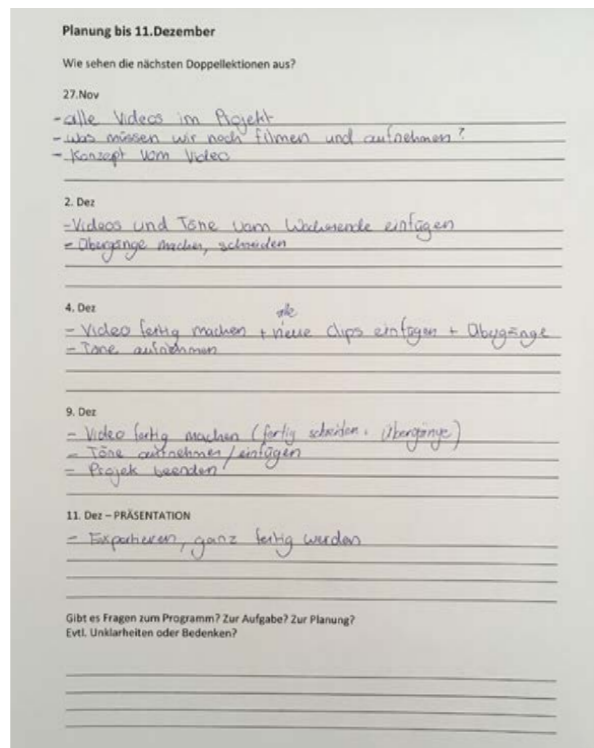 Planung bis 11.Dezember
Wie sehen die nächsten Doppellektionen aus?
27.Nov
- alle Videos im Projekt
- was müssen wir noch filmen und aufnehmen?
- Konzept vom Video
2. Dez
- Videos und Töne vom Wochenende einfügen
- Übergänge machen, schneiden
4. Dez
alle
- Video fertig machen + neue Clips einfügen + Übergänge
- Töne aufnehmen
9. Dez
- Video fertig machen (fertig schneiden, Übergänge)
- Töne aufnehmen / einfügen
- Projek beenden
11. Dez – PRÄSENTATION
- Exportieren, ganz fertig werden
Gibt es Fragen zum Programm? Zur Aufgabe? Zur Planung?
Evtl. Unklarheiten oder Bedenken?